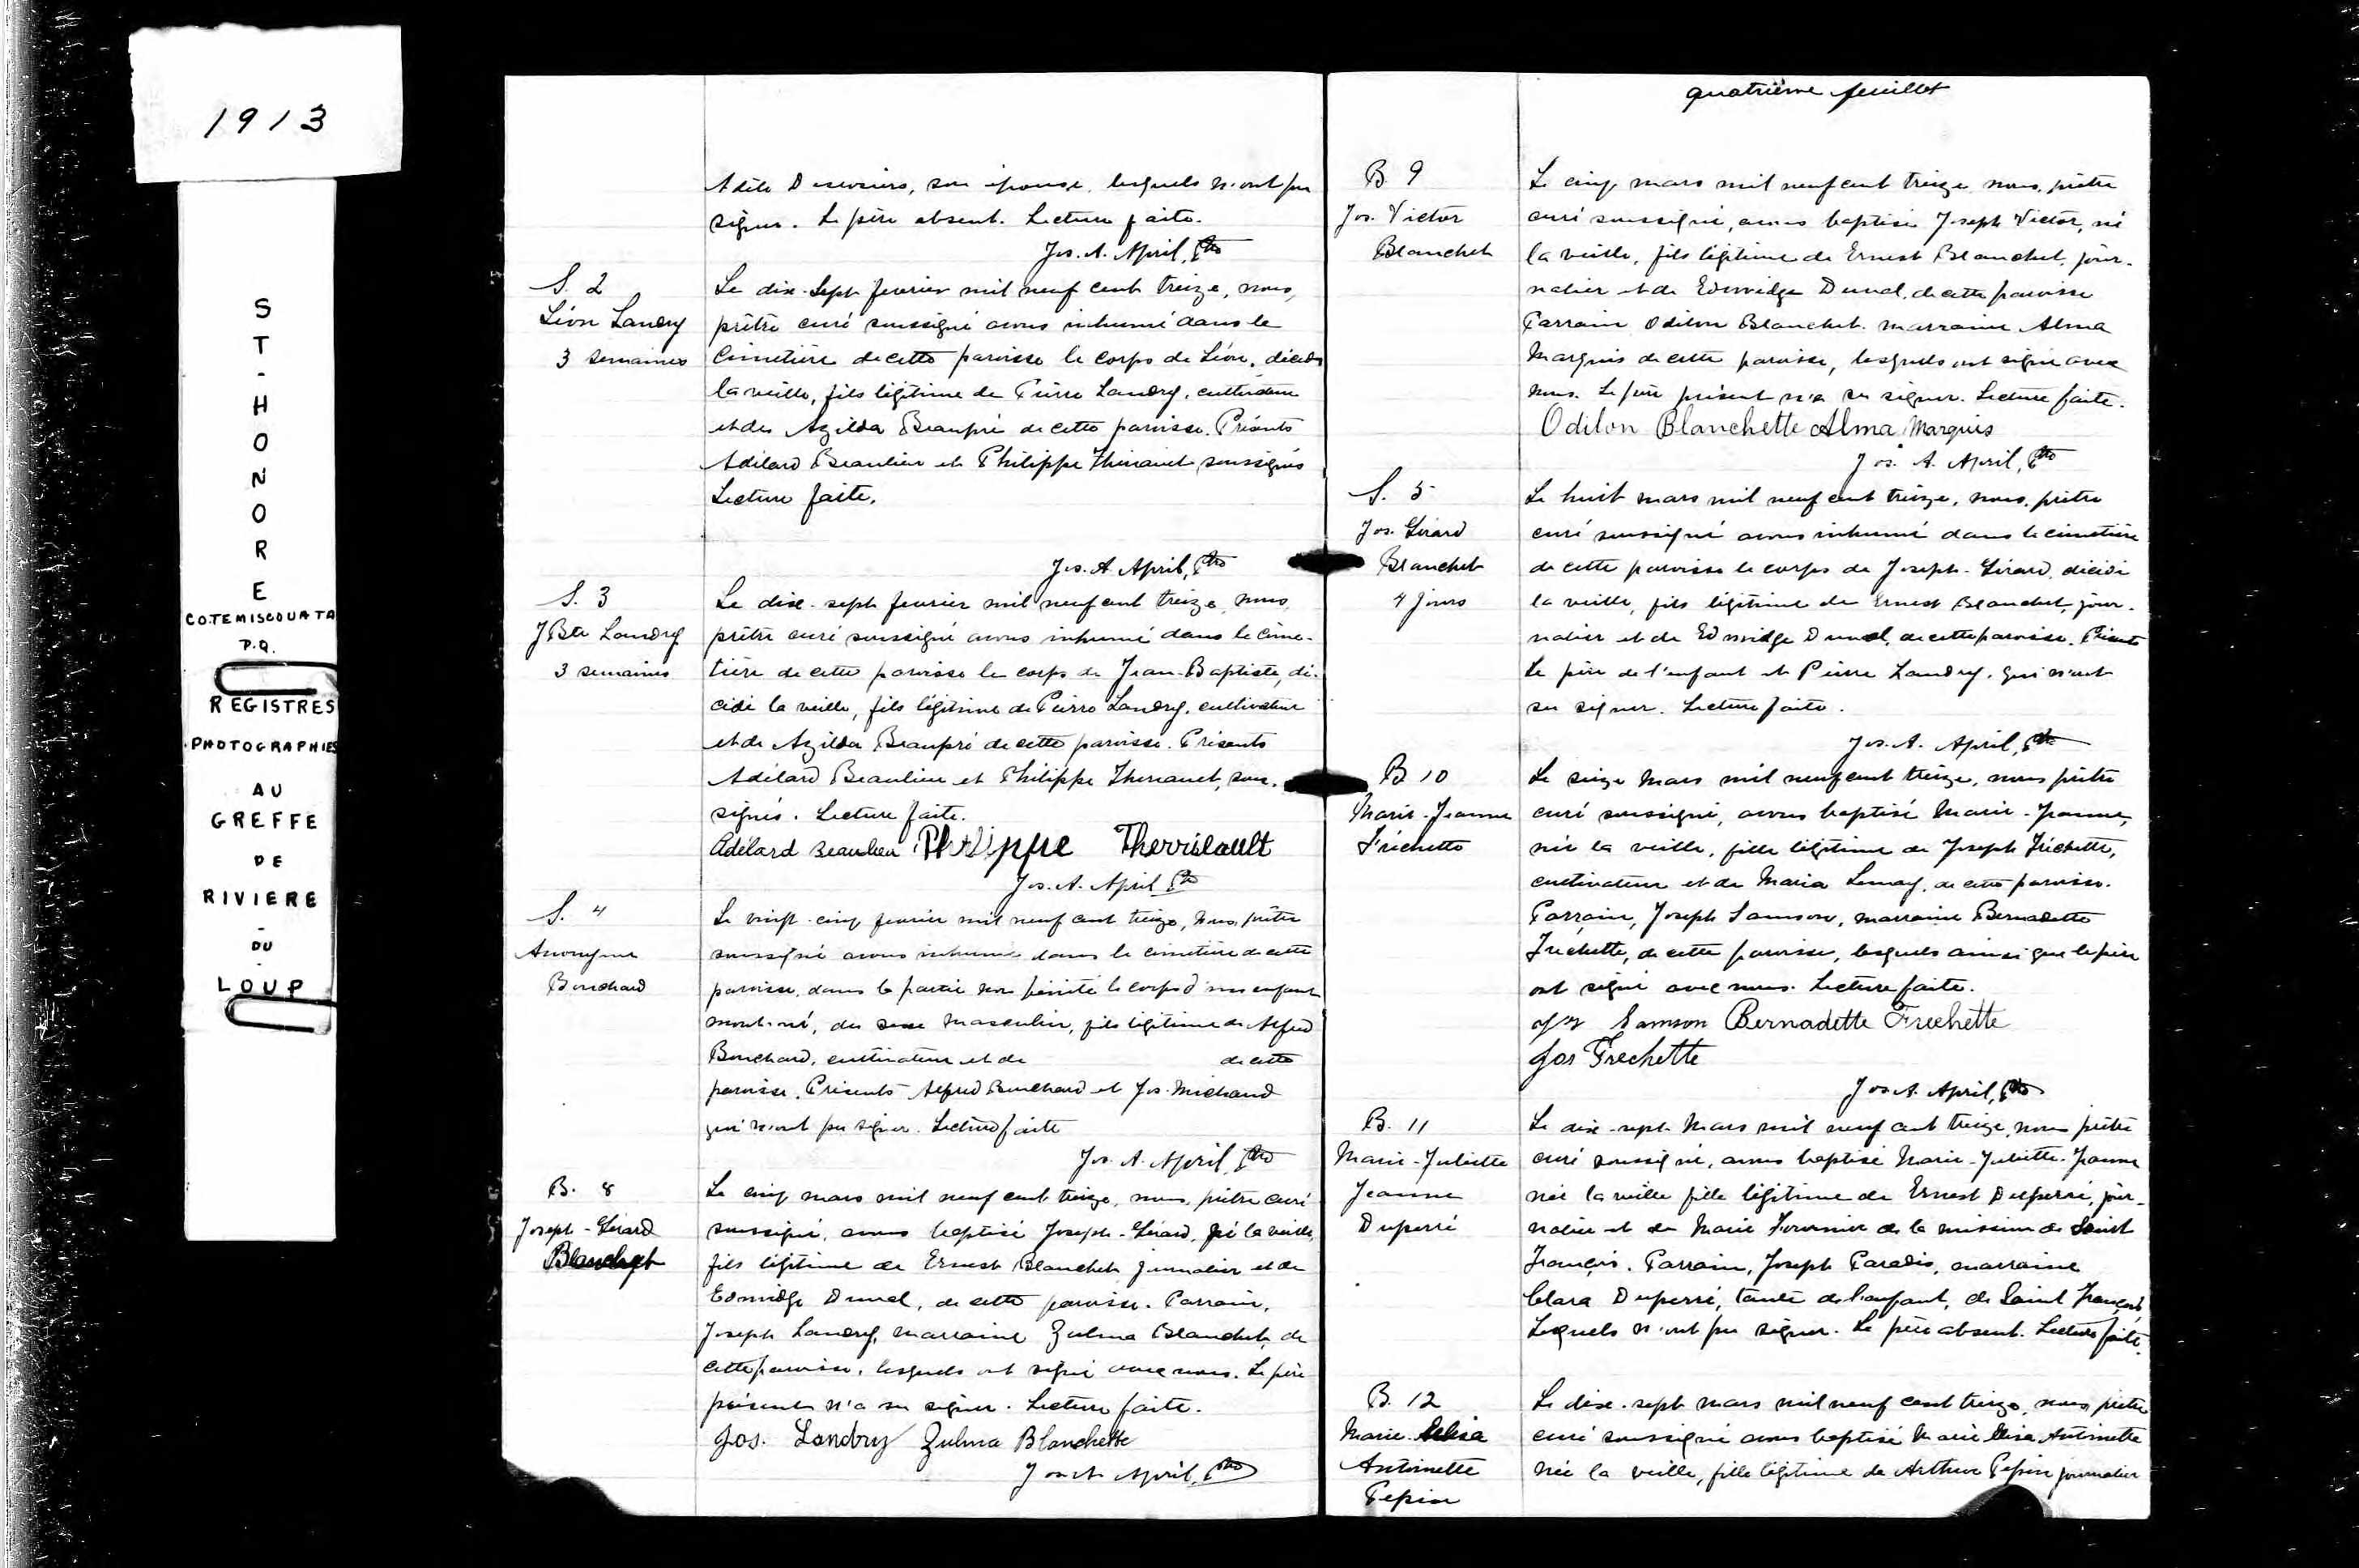 1913
ST-HONORE
CO.TEMISCOUATA
P.Q.
REGISTRES
PHOTOGRAPHIES
AU
GREFFE
DE
RIVIERE
-
DU
-
LOUP
Adèle Desrosiers, son épouse, lesquels n'ont pu
signer. Le père absent. Lecture faite.
Jos. A. April, Ptre
S. 2
Léon Landry
3 semaines
Le dix-sept fevrier mil neuf cent treize, nous,
prêtre curé soussigné avons inhumé dans le
cimetière de cette paroisse le corps de Léon, décédé
la veille, fils légitime de Pierre Landry, cultivateur
et de Azilda Beaupré de cette paroisse. Présents
Adélard Beaulieu et Philippe Theriault soussignés
Lecture faite.
Jos. A. April, Ptre
S. 3
J Bte Landry
3 semaines
Le dix-sept fevrier mil neuf cent treize, nous,
prêtre curé soussigné avons inhumé dans le cime-
tière de cette paroisse le corps de Jean-Baptiste, dé-
cédé la veille, fils légitime de Pierre Landry, cultivateur
et de Azilda Beaupré de cette paroisse. Présents
Adélard Beaulieu et Philippe Theriault, sous-
signés. Lecture faite.
Adélard Beaulieu Philippe Therrieault
Jos. A. April Ptre
S. 4
Anonyme
Bouchard
Le vingt-cinq fevrier mil neuf cent treize, nous, prêtre
soussigné avons inhumé dans le cimetière de cette
paroisse, dans la partie non bénite le corps d'un enfant
mort-né, du sexe masculin, fils légitime de Alfred
Bouchard, cultivateur et de de cette
paroisse. Présents Alfred Bouchard et Jos. Michaud
qui n'ont pu signer. Lecture faite
Jos. A. April, Ptre
B. 8
Joseph-Gérard
Blanchet
Le cinq mars mil neuf cent treize, nous, prêtre curé
soussigné, avons baptisé Joseph-Gérard, né la veille,
fils légitime de Ernest Blanchet, journalier et de
Edwidge Duval, de cette paroisse. Parrain,
Joseph Landry, marraine Zulma Blanchet, de
cette paroisse, lesquels ont signé avec nous. Le père
présent n'a su signer. Lecture faite.
Jos. Landry Zulma Blanchette
Jos A. April, Ptre
quatrième feuillet
B. 9
Jos. Victor
Blanchet
Le cinq mars mil neuf cent treize, nous, prêtre
curé soussigné, avons baptisé Joseph Victor, né
la veille, fils légitime de Ernest Blanchet, jour-
nalier et de Edwidge Duval, de cette paroisse
Parrain Odilon Blanchet, marraine Alma
Marquis de cette paroisse, lesquels ont signé avec
nous. Le père présent n'a su signer. Lecture faite.
Odilon Blanchette Alma Marquis
Jos. A. April, Ptre
S. 5
Jos. Gérard
Blanchet
4 jours
Le huit mars mil neuf cent treize, nous, prêtre
curé soussigné avons inhumé dans le cimetière
de cette paroisse le corps de Joseph-Gérard, décédé
la veille, fils légitime de Ernest Blanchet, jour-
nalier et de Edwidge Duval, de cette paroisse. Présents
Le père de l'enfant et Pierre Landry, qui n'ont
su signer. Lecture faite.
Jos. A. April, Ptre
B 10
Marie-Jeanne
Fréchette
Le seize mars mil neuf cent treize, nous prêtre
curé soussigné, avons baptisé Marie-Jeanne,
née la veille, fille légitime de Joseph Fréchette,
cultivateur et de Maria Lemay, de cette paroisse.
Parrain, Joseph Samson, marraine Bernadette
Fréchette, de cette paroisse, lesquels ainsi que le père
ont signé avec nous. Lecture faite.
Samson Bernadette Frechette
Jos Frechette
Jos A. April, Ptre
B. 11
Marie-Juliette
Jeanne
Duperré
Le dix-sept Mars mil neuf cent treize, nous prêtre
curé soussigné, avons baptisé Marie-Juliette-Jeanne
née la veille fille légitime de Ernest Duperré, jour-
nalier et de Marie Fournier de la mission de Saint
François. Parrain, Joseph Paradis, marraine
Clara Duperré, tante de l'enfant, de Saint François
Lesquels n'ont pu signer. Le père absent. Lecture faite.
B. 12
Marie Elisa
Antoinette
Pepin
Le dix-sept mars mil neuf cent treize, nous, prêtre
curé soussigné avons baptisé Marie Elisa Antoinette
née la veille, fille légitime de Arthur Pepin journalier